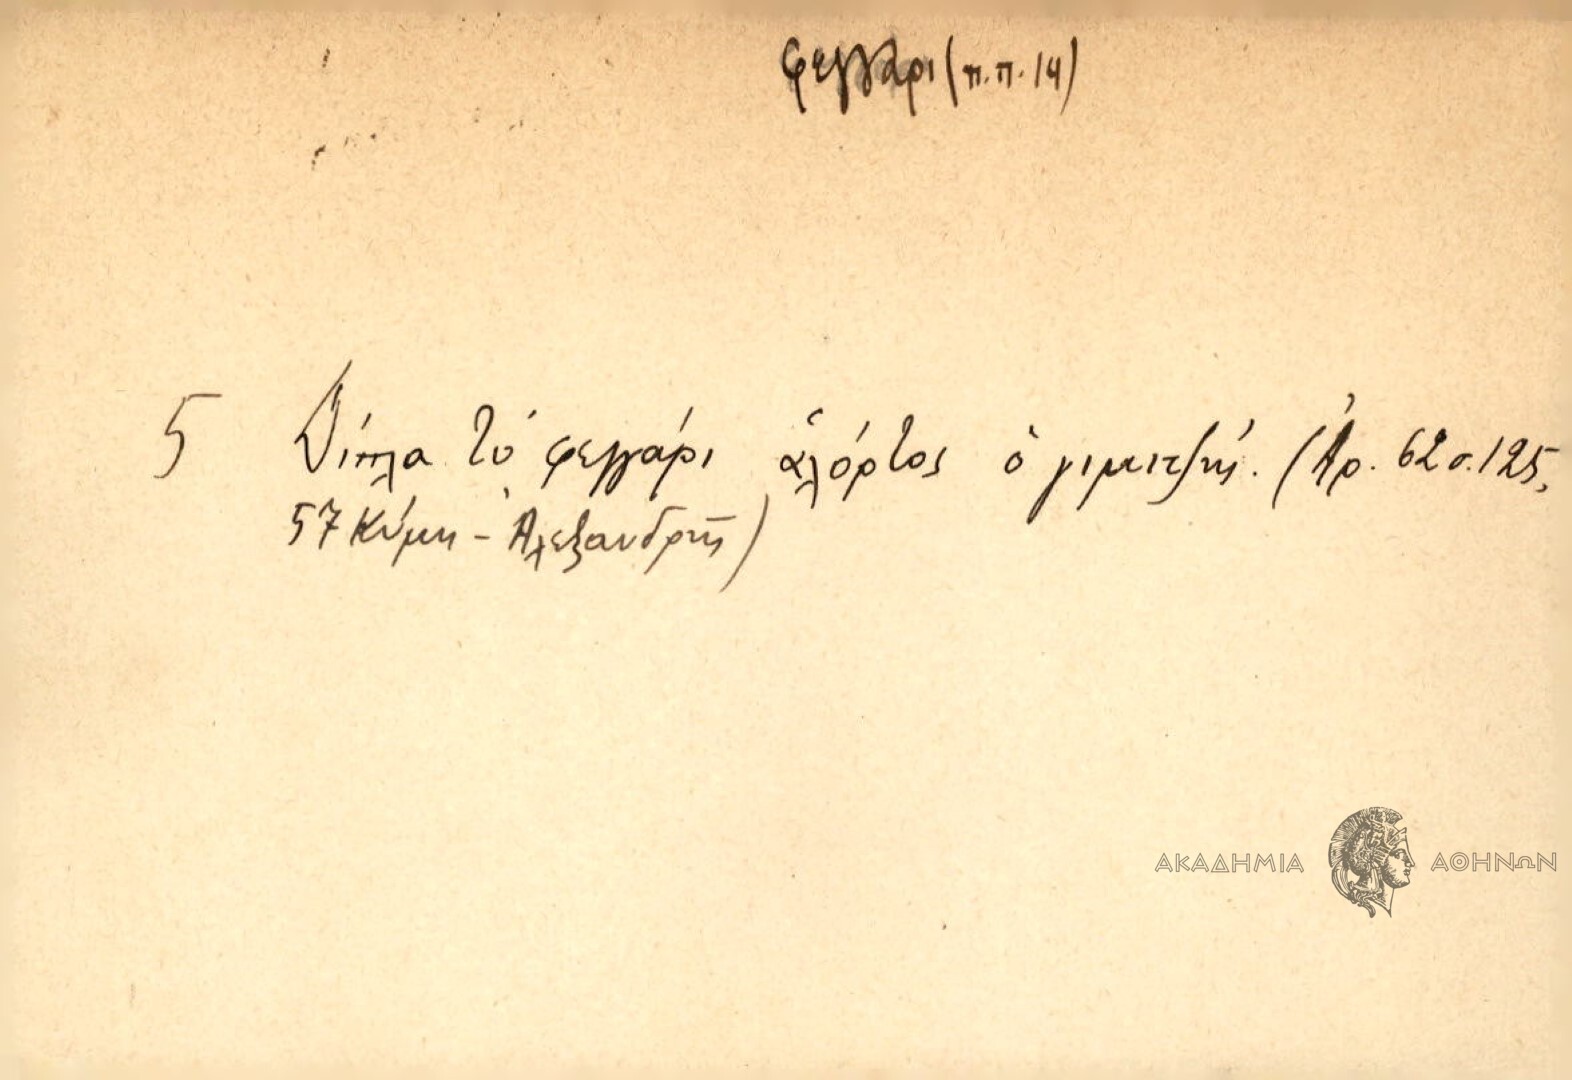 φεγγάρι (π.π. 14)
5 Δίπλα τὸ φεγγάρι ἀλόρτος ὁ γιμιτζής. (Ἀρ. 62 σ. 125,
57 Κύμη - Ἀλεξανδρῆς)
ΑΚΑΔΗΜΙΑ ΑΘΗΝΩΝ